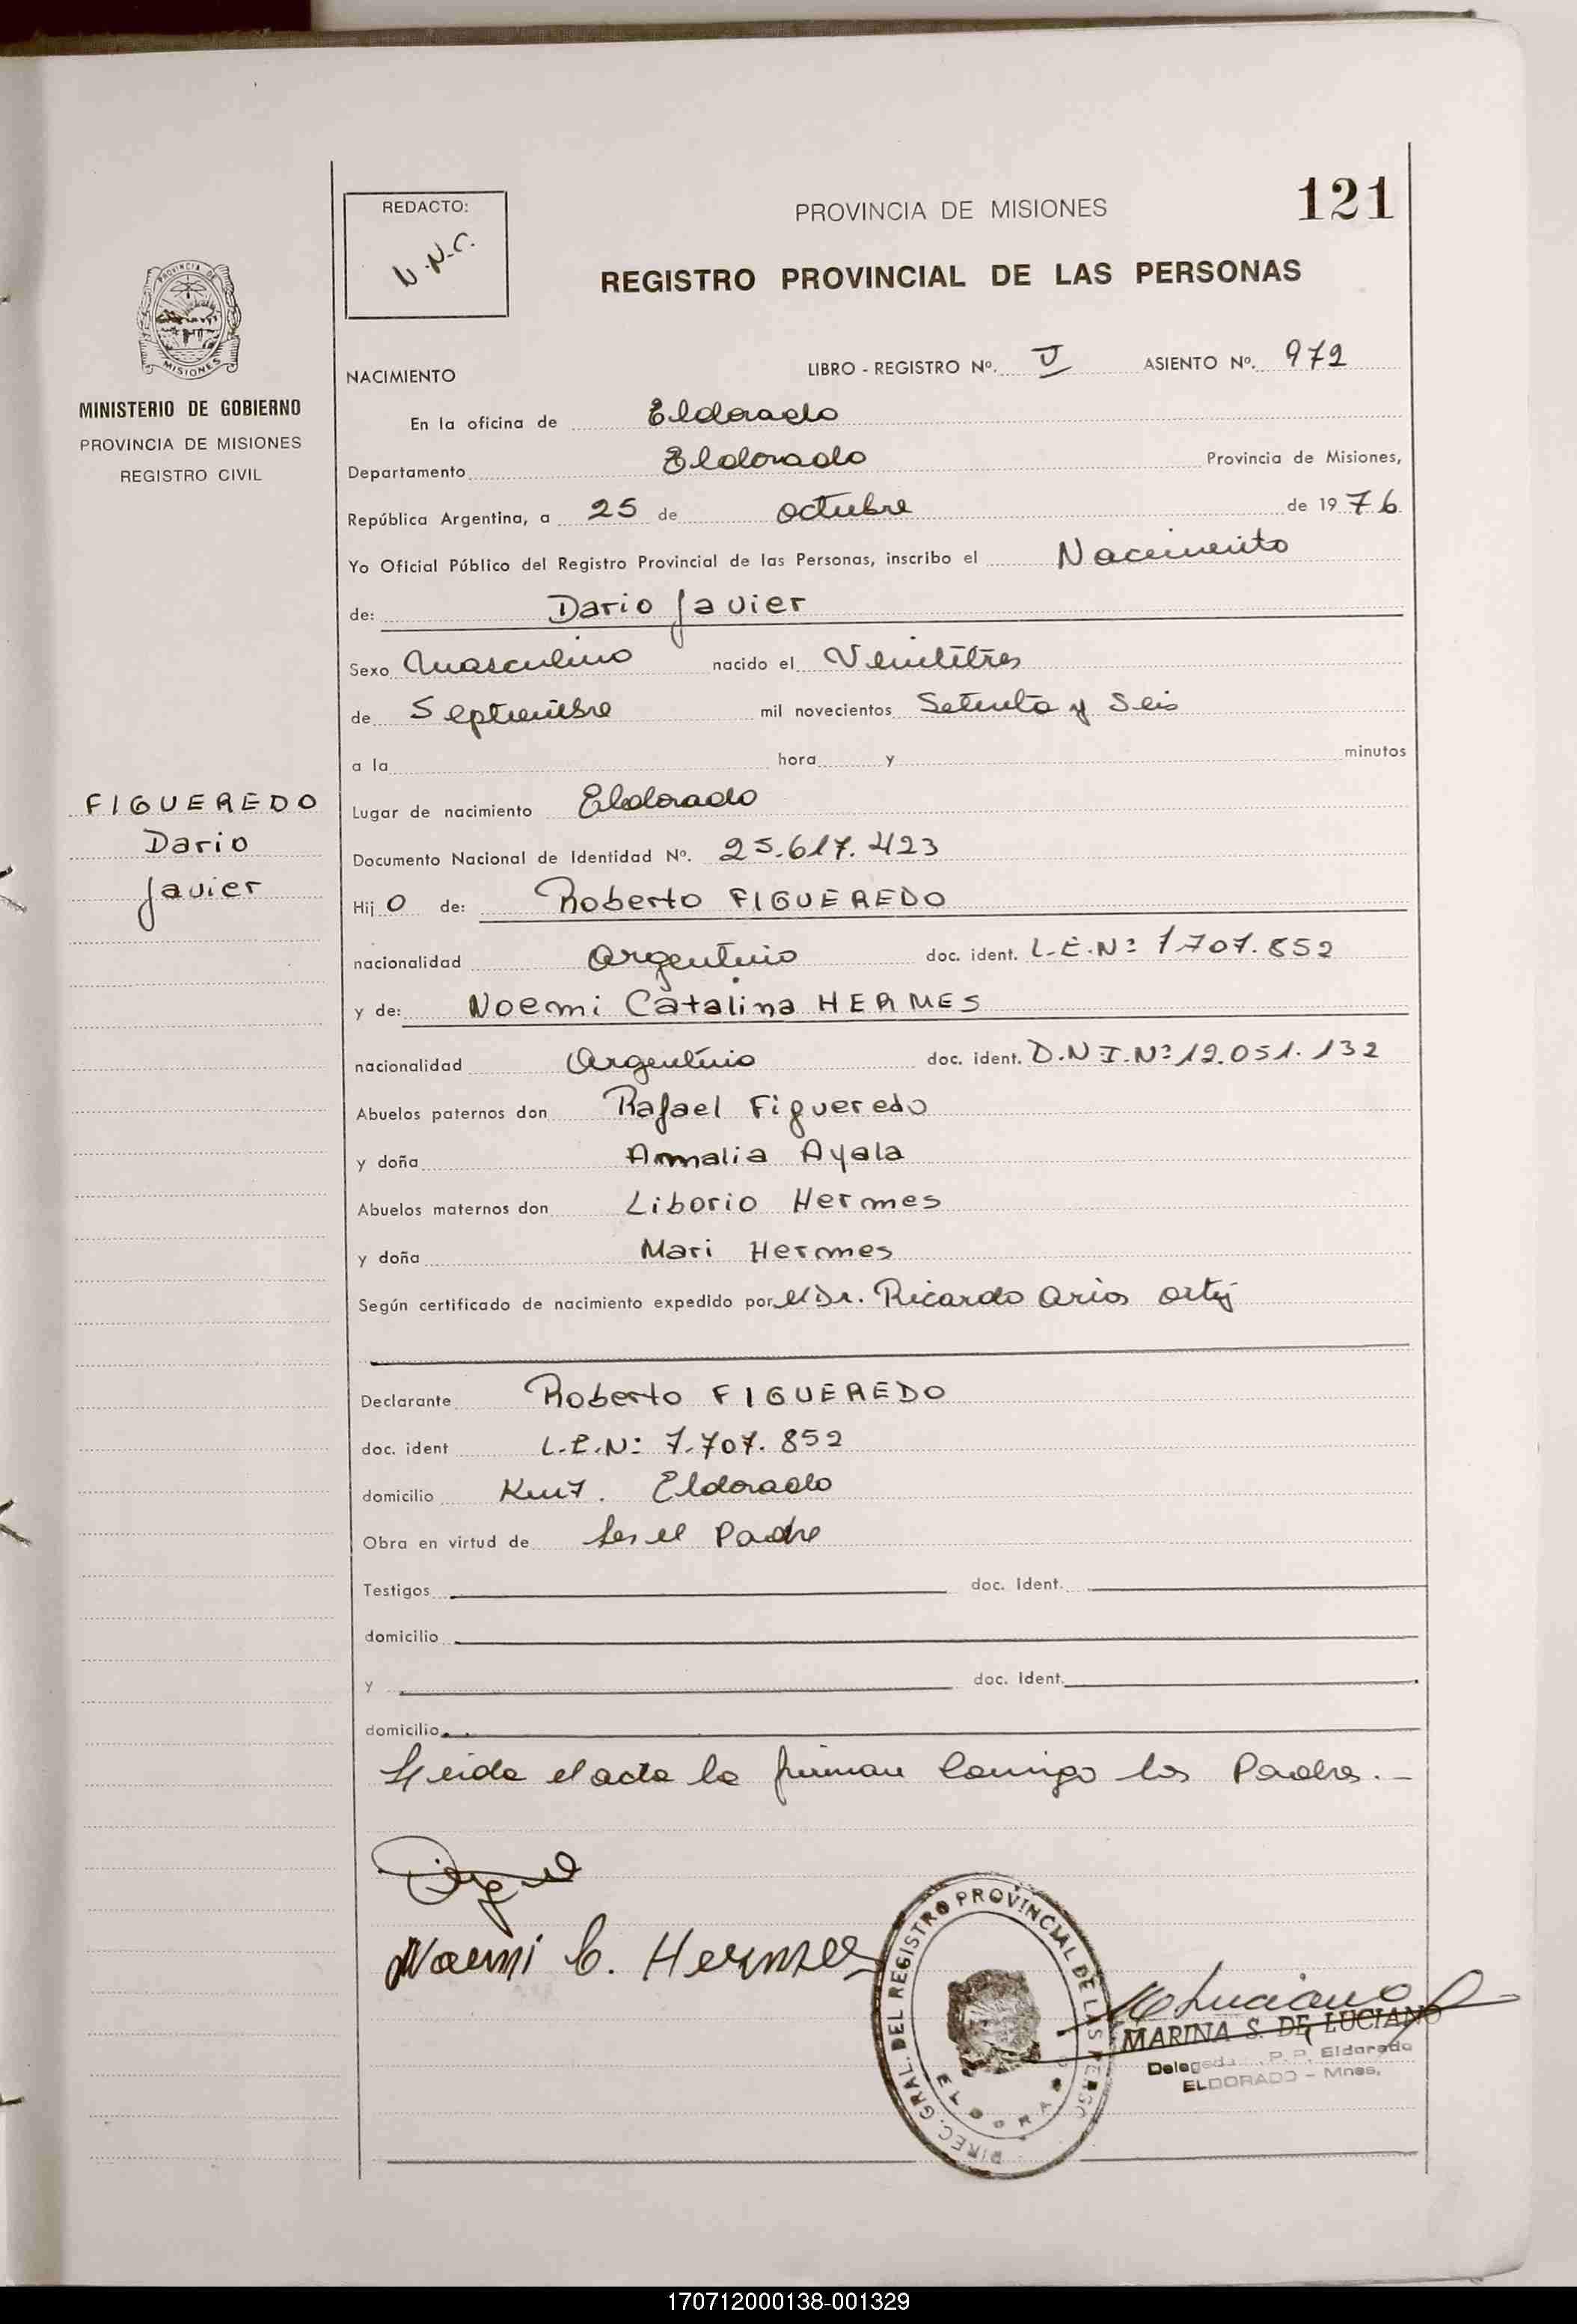 121
REDACTO:
N.N.C.
PROVINCIA DE MISIONES
REGISTRO PROVINCIAL DE LAS PERSONAS
PROVINCIA DE
MISIONES
MINISTERIO DE GOBIERNO
PROVINCIA DE MISIONES
REGISTRO CIVIL
FIGUEREDO
Dario
Javier
NACIMIENTO LIBRO - REGISTRO Nº. V ASIENTO Nº. 972
En la oficina de Eldorado
Departamento Eldorado Provincia de Misiones,
República Argentina, a 25 de octubre de 1976
Yo Oficial Público del Registro Provincial de las Personas, inscribo el Nacimiento
de: Dario Javier
Sexo Masculino nacido el Veintitres
de Septiembre mil novecientos Setenta y Seis
a la hora y minutos
Lugar de nacimiento Eldorado
Documento Nacional de Identidad Nº. 25.617.423
Hijo de: Roberto FIGUEREDO
nacionalidad Argentino doc. ident. L.E.Nº 7.707.852
y de: Noemi Catalina HERMES
nacionalidad Argentino doc. ident. D.N.I.Nº 12.051.132
Abuelos paternos don Rafael Figueredo
y doña Amalia Ayala
Abuelos maternos don Liborio Hermes
y doña Mari Hermes
Según certificado de nacimiento expedido por el Dr. Ricardo Arios
Declarante Roberto FIGUEREDO
doc. ident L.E.Nº 7.707.852
domicilio Km 7. Eldorado
Obra en virtud de Ser el Padre
Testigos doc. Ident.
domicilio
y doc. Ident.
domicilio
Leida el acta la firman Conmigo los Padres.-
Noemi C. Hermes
DIREC. GRAL. DEL REGISTRO PROVINCIAL DE LAS PERSO
ELDORADO
MARINA S. DE LUCIANO
Delegada P.P. Eldorado
ELDORADO - Mnes.
170712000138-001329